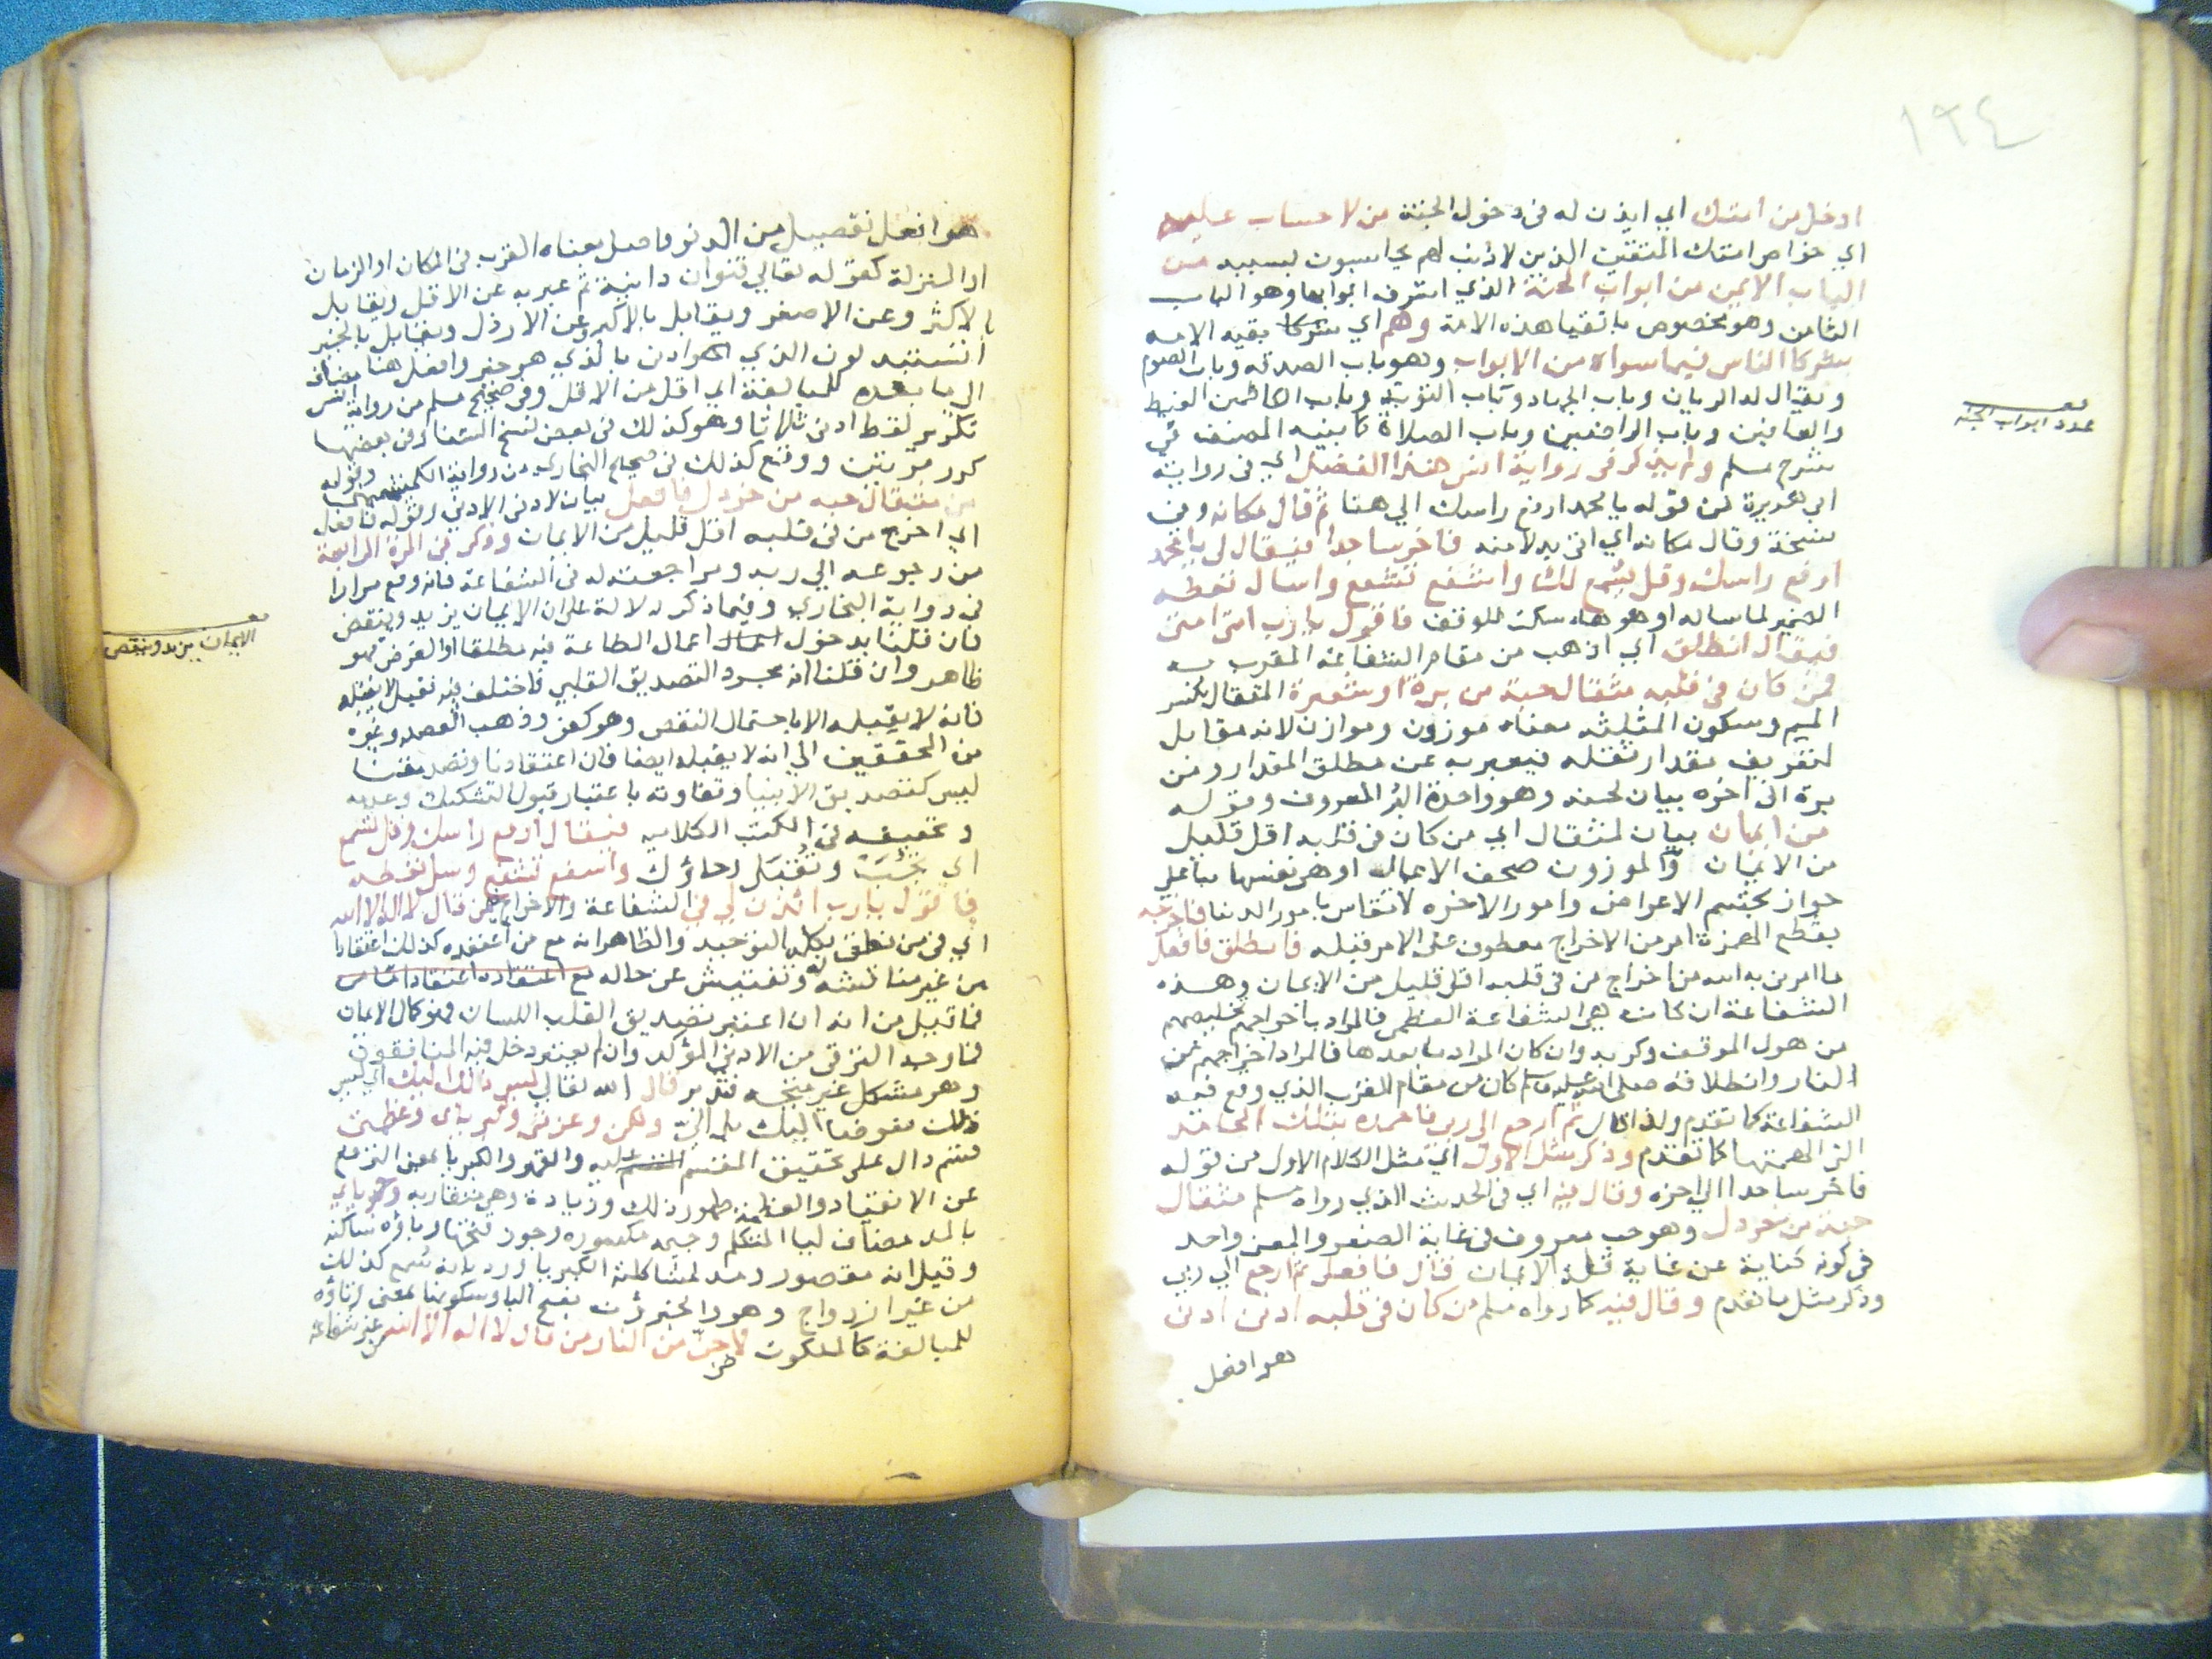 ١٩٤
ادخل من امتك اي ايذن له في دخول الجنة من لا حساب عليه
اي خواص امتك المتقين الذين لا ذنب لهم يحاسبون بسببه من
الباب الايمن من ابواب الجنة الذي اشرف ابوابها وهو الباب
الثامن وهو مخصوص باتقيا هذه الامة وهم اي شركا بقية الامة
شركا الناس فيما سواه من الابواب وهو باب الصدقه وباب الصوم
ويقال له الريان وباب الجهاد وباب التوبة وباب الكاظمين الغيظ
والعافين وباب الراضين وباب الصلاة كما بينه المصنف في
شرح مسلم ولم يذكر في رواية انس هذا الفصل اي في رواية
ابي هريرة من قوله يا محمد ارفع راسك الي هنا ثم قال مكانه وفي
نسخة وقال مكانه اي اتي بدلا منه فاخر ساجدا فيقال لي يا محمد
ارفع راسك وقل يسمع لك واشفع تشفع واسال تعطه
الضمير لما ساله او هو هاء سكت للوقف فاقول يارب امتي امتي
فيقال انطلق اي اذهب من مقام الشفاعة المقرب به
فمن كان في قلبه مثقال حبة من برة او شعيرة المثقال بكسر
الميم وسكون المثلثه معناه موزون وموازن لانه مقابل
لتعريف مقدار ثقله فيعبر به عن مطلق المقدار ومن
برة الى اخره بيان لحبه وهو واحدة البُر المعروف وقوله
من ايمان بيان لمثقال اي من كان في قلبه اقل قليل
من الايمان والموزون صحف الاعمال او هي نفسها بنا علي
جواز تجسم الاعراض وامور الاخره لا تقاس بامور الدنيا فاخرجه
بقطع الهمزة امر من الاخراج معطوف على الامر قبله فانطلق فافعل
ما امرني به الله من اخراج من في قلبه اقل قليل من الايمان وهذه
الشفاعة ان كانت هي الشفاعة العظمى فالمراد باخراجهم تخليصهم
من هول الموقف وكربه وان كان المراد ما بعدها فالمراد اخراجهم من
النار وانطلاقه صلى الله عليه وسلم كان من مقام القرب الذي وقع فيه
الشفاعة كما تقدم ولذا قال ثم ارجع الى ربي فاحمده بتلك المحامد
التي الهمتها كما تقدم وذكر مثل الاول اي مثل الكلام الاول من قوله
فاخر ساجدا الي اخره وقال فيه اي في الحديث الذي رواه مسلم مثقال
حبة من خردل وهو حب معروف في غاية الصغر والمعنى واحد
في كونه كناية عن غاية قلة الايمان قال فافعل ثم ارجع الي ربي
وذكر مثل ما تقدم وقال فيه كما رواه مسلم من كان في قلبه ادنى ادنى
هو افعل
عدد ابواب الجنه
هو افعل تفصيل من الدنو واصل معناه القرب في المكان او الزمان
او المنزلة كقوله تعالي قنوان دانية ثم عبر به عن الاقل ويقابل
بالاكثر وعن الاصغر ويقابل بالاكبر وعن الارذل ويقابل بالخير
اتستبدلون الذي هو ادنى بالذي هو خير وافعل هنا مضاف
الي ما بعده للمبالغة اي اقل من الاقل وفي صحيح مسلم من رواية انس
تكرير لفظ ادنى ثلاثا وهو كذلك في بعض نسخ الشفا وفي بعضها
كرر مرتين ووقع كذلك في صحيح البخاري من رواية الكشميهني وقوله
من مثقال حبه من خردل فافعل بيان لادنى الادنى وقوله فافعل
اي اخرج من في قلبه اقل قليل من الايمان وذكر في المرة الرابعة
من رجوعه الي ربه ومراجعته له في الشفاعة فانه وقع مرارا
في رواية البخاري وفيما ذكر دلالة على ان الايمان يزيد وينقص
فان قلنا بدخول اعمال الطاعة فيه مطلقا او الفرض فهو
ظاهر وان قلنا انه مجرد التصديق القلبي فاختلف فيه فقيل لا يقبله
فانه لا يقبله الا باحتمال النقص وهو كفر وذهب العضد وغيره
من المحققين الي انه لا يقبله ايضا فان اعتقادنا وتصديقنا
ليس كتصديق الانبيا وتفاوته باعتبار قبول التشكيك وعدمه
وتحقيقه في الكتب الكلاميه فيقال ارفع راسك وقل تسمع
اي يُجَبْ وتُقبَل دعاؤك واشفع تشفع وسل تعطه
فاقول يارب ائذن لي في الشفاعة والاخراج فمن قال لا اله الا الله
اي في من نطق بكلمة التوحيد والظاهر انه مع من اعتقده كذلك اعتقادا
من غير مناقشه له وتفتيش عن حاله مع اعتقاده اعتقادا
فما قيل من انه ان اعتبر تصديق القلب اللسان فهو كمال الايمان
فما وجه الترقي من الادنى المؤكد وان لم يعتبر دخل فيه المنافقون
وهو مشكل غير متجه فتدبر قال الله تعالي ليس ذلك اليك اي ليس
ذلك مفوضا اليك بل اليّ ولكن وعزتي وكبريائي وعظمتي
قسم دال على تحقيق المقسم عليه والقهر والكبريا بمعنى الترفع
عن الانقياد والعظمة ظهور ذلك وزيادة وهي متقاربه وجبريائي
بالمد مضاف ليا المتكلم وجيمه مكسوره وجوز فتحها وباؤه ساكنه
وقيل انه مقصور ومد لمشاكلة الكبريا ورد بانه سُمع كذلك
من غير ازدواج وهو والجبروت بفتح البا وسكونها بمعنى وتاؤه
للمبالغة كالملكوت لاخرجنّ من النار من قال لا اله الا الله من غير شفاعة
الايمان يزيد وينقص